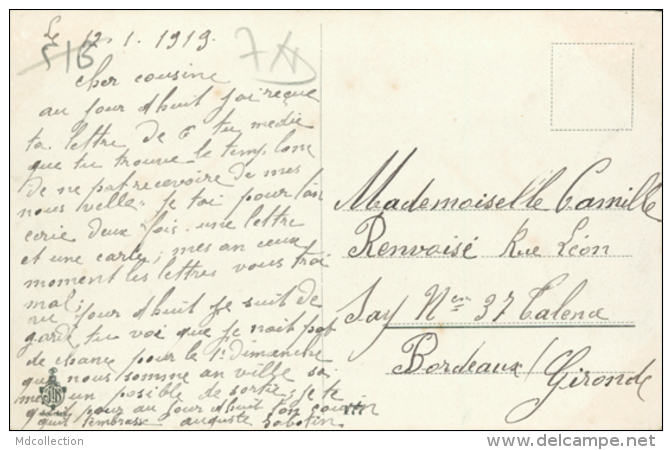 Le 12.1.1919.
cher cousine
au jour dhuit jai reçue
ta lettre de 6 tu me die
que tu trouve le temp lon
de ne pat recevoire de mes
nous velle je tai pour tan
crie deux fois une lettre
et une carte, mes an ceux
moment les lettres vous troi
mal;
au jour dhuit je suit de
garde tu voi que je nait pat
de chance pour le 1er dimanche
que nous somme an ville sai
un posible de sortir, je te
quit pour au jour dhuit ton cousin
quit tembrasse auguste Sabotin
Mademoiselle Camille
Renvoisé Rue Léon
Say Nero 37 Talence
Bordeaux/
Gironde
Mdcollection
www.delcampe.net